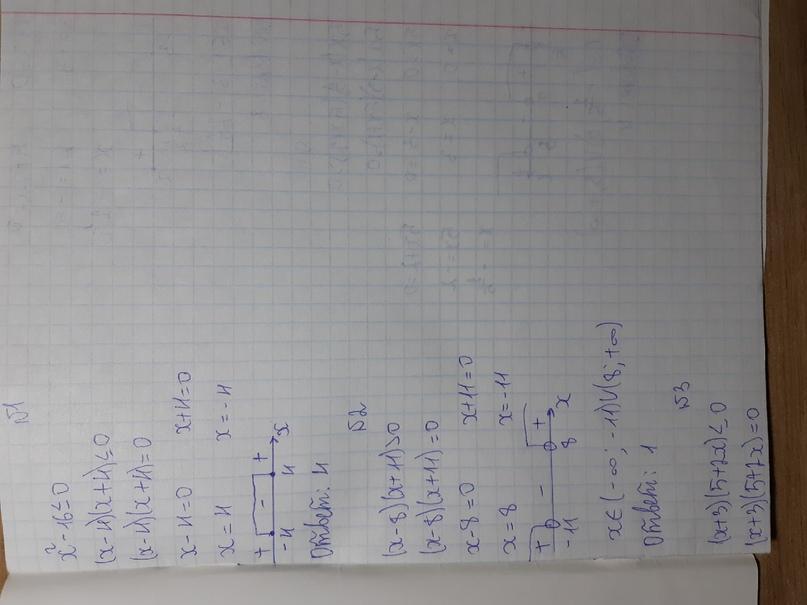 №1
x² - 16 ≤ 0
(x-4)(x+4) ≤ 0
(x-4)(x+4) = 0
x-4=0 x+4=0
x=4 x=-4
+ - +
-4 4 x
Ответ: 4
№2
(x-8)(x+11)>0
(x-8)(x+11)=0
x-8=0 x+11=0
x=8 x=-11
+ - +
-11 8 x
x∈(-∞; -11)∪(8; +∞)
Ответ: 1
№3
(x+3)(5+2x) ≤ 0
(x+3)(5+2x)=0